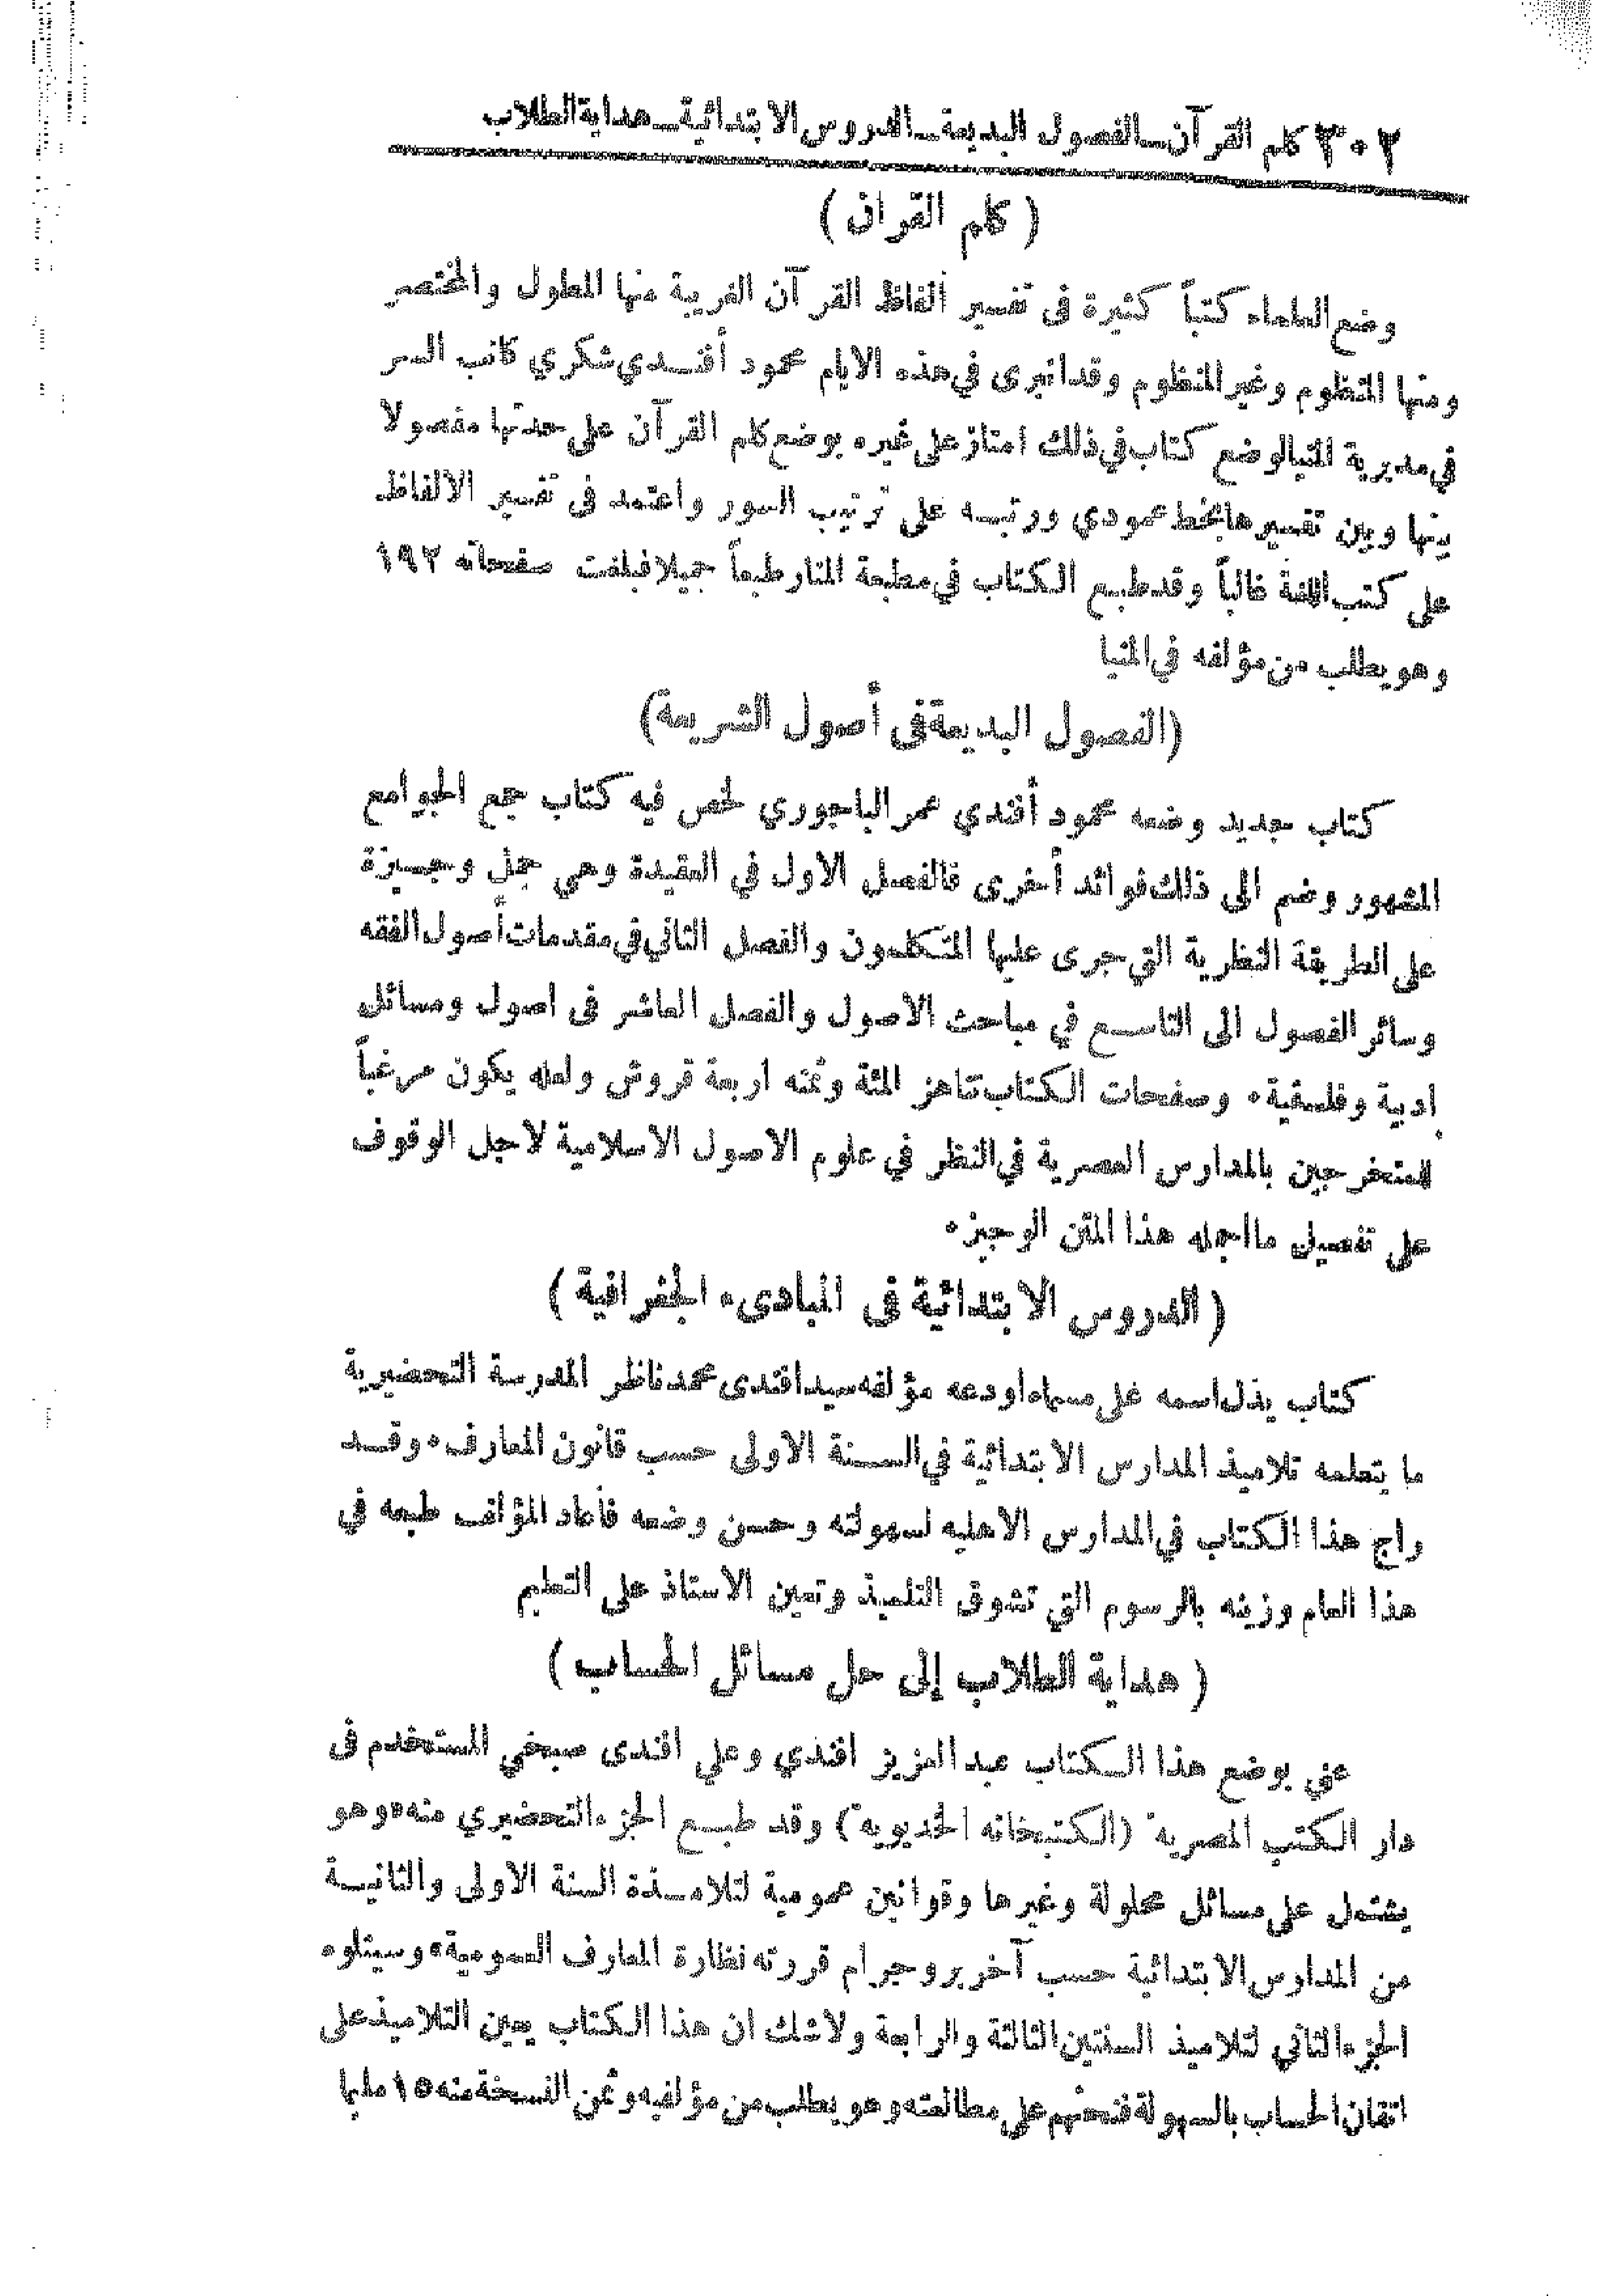 ٣٠٢ كلم القرآن ـ الفصول البديعة ـ الدروس الابتدائية ـ هداية الطلاب
( كلم القران )
وضع العلماء كتباً كثيرة في تفسير ألفاظ القرآن الغريبة منها المطول والمختصر
ومنها المنظوم وغير المنظوم وقد انبرى في هذه الايام محمود أفندي شكري كاتب السر
في مديرية المنيا لوضع كتاب في ذلك امتاز على غيره بوضع كلم القرآن على حدتها مفصولا
بينها وبين تفسيرها بخط عمودي ورتبه على ترتيب السور واعتمد في تفسير الالفاظ
على كتب اللغة غالباً وقد طبع الكتاب في مطبعة المنار طبعاً جميلا فبلغت صفحاته ١٩٢
وهو يطلب من مؤلفه في المنيا
(الفصول البديعة في أصول الشريعة)
كتاب جديد وضعه محمود أفندي عمر الباجوري لخص فيه كتاب جمع الجوامع
المشهور وضم الى ذلك فوائد أخرى فالفصل الاول في العقيدة وهي جمل وجيزة
على الطريقة النظرية التي جرى عليها المتكلمون والفصل الثاني في مقدمات أصول الفقه
وسائر الفصول الى التاسع في مباحث الاصول والفصل العاشر في اصول ومسائل
ادبية وفلسفية ٠ وصفحات الكتاب تناهز المئة وثمنه اربعة قروش ولعله يكون مرغباً
للمتخرجين بالمدارس المصرية في النظر في علوم الاصول الاسلامية لاجل الوقوف
على تفصيل ما اجمله هذا المتن الوجيز ٠
( الدروس الابتدائية في المبادىء الجغرافية )
كتاب يدل اسمه على مسماه اودعه مؤلفه سيد افندى محمد ناظر المدرسة التحضيرية
ما يتعلمه تلاميذ المدارس الابتدائية في السنة الاولى حسب قانون المعارف ٠ وقد
راج هذا الكتاب في المدارس الاهليه لسهولته وحسن وضعه فأعاد المؤلف طبعه في
هذا العام وزينه بالرسوم التي تشوق التلميذ وتعين الاستاذ على التعليم
( هداية الطلاب إلى حل مسائل الحساب )
عني بوضع هذا الكتاب عبد العزيز افندي وعلي افندى صبحي المستخدم في
دار الكتب المصرية (الكتبخانه الخديويه) وقد طبع الجزء التحضيري منه ٠ وهو
يشتمل على مسائل محلولة وغيرها وقوانين عمومية لتلامذة السنة الاولى والثانية
من المدارس الابتدائية حسب آخر بروجرام قررته نظارة المعارف العمومية ٠ وسيتلوه
الجزء الثاني لتلاميذ السنتين الثالثة والرابعة ولا شك ان هذا الكتاب يعين التلاميذ على
اتقان الحساب بالسهولة فنحثهم على مطالعته وهو يطلب من مؤلفيه وثمن النسخة منه ١٥ مليما